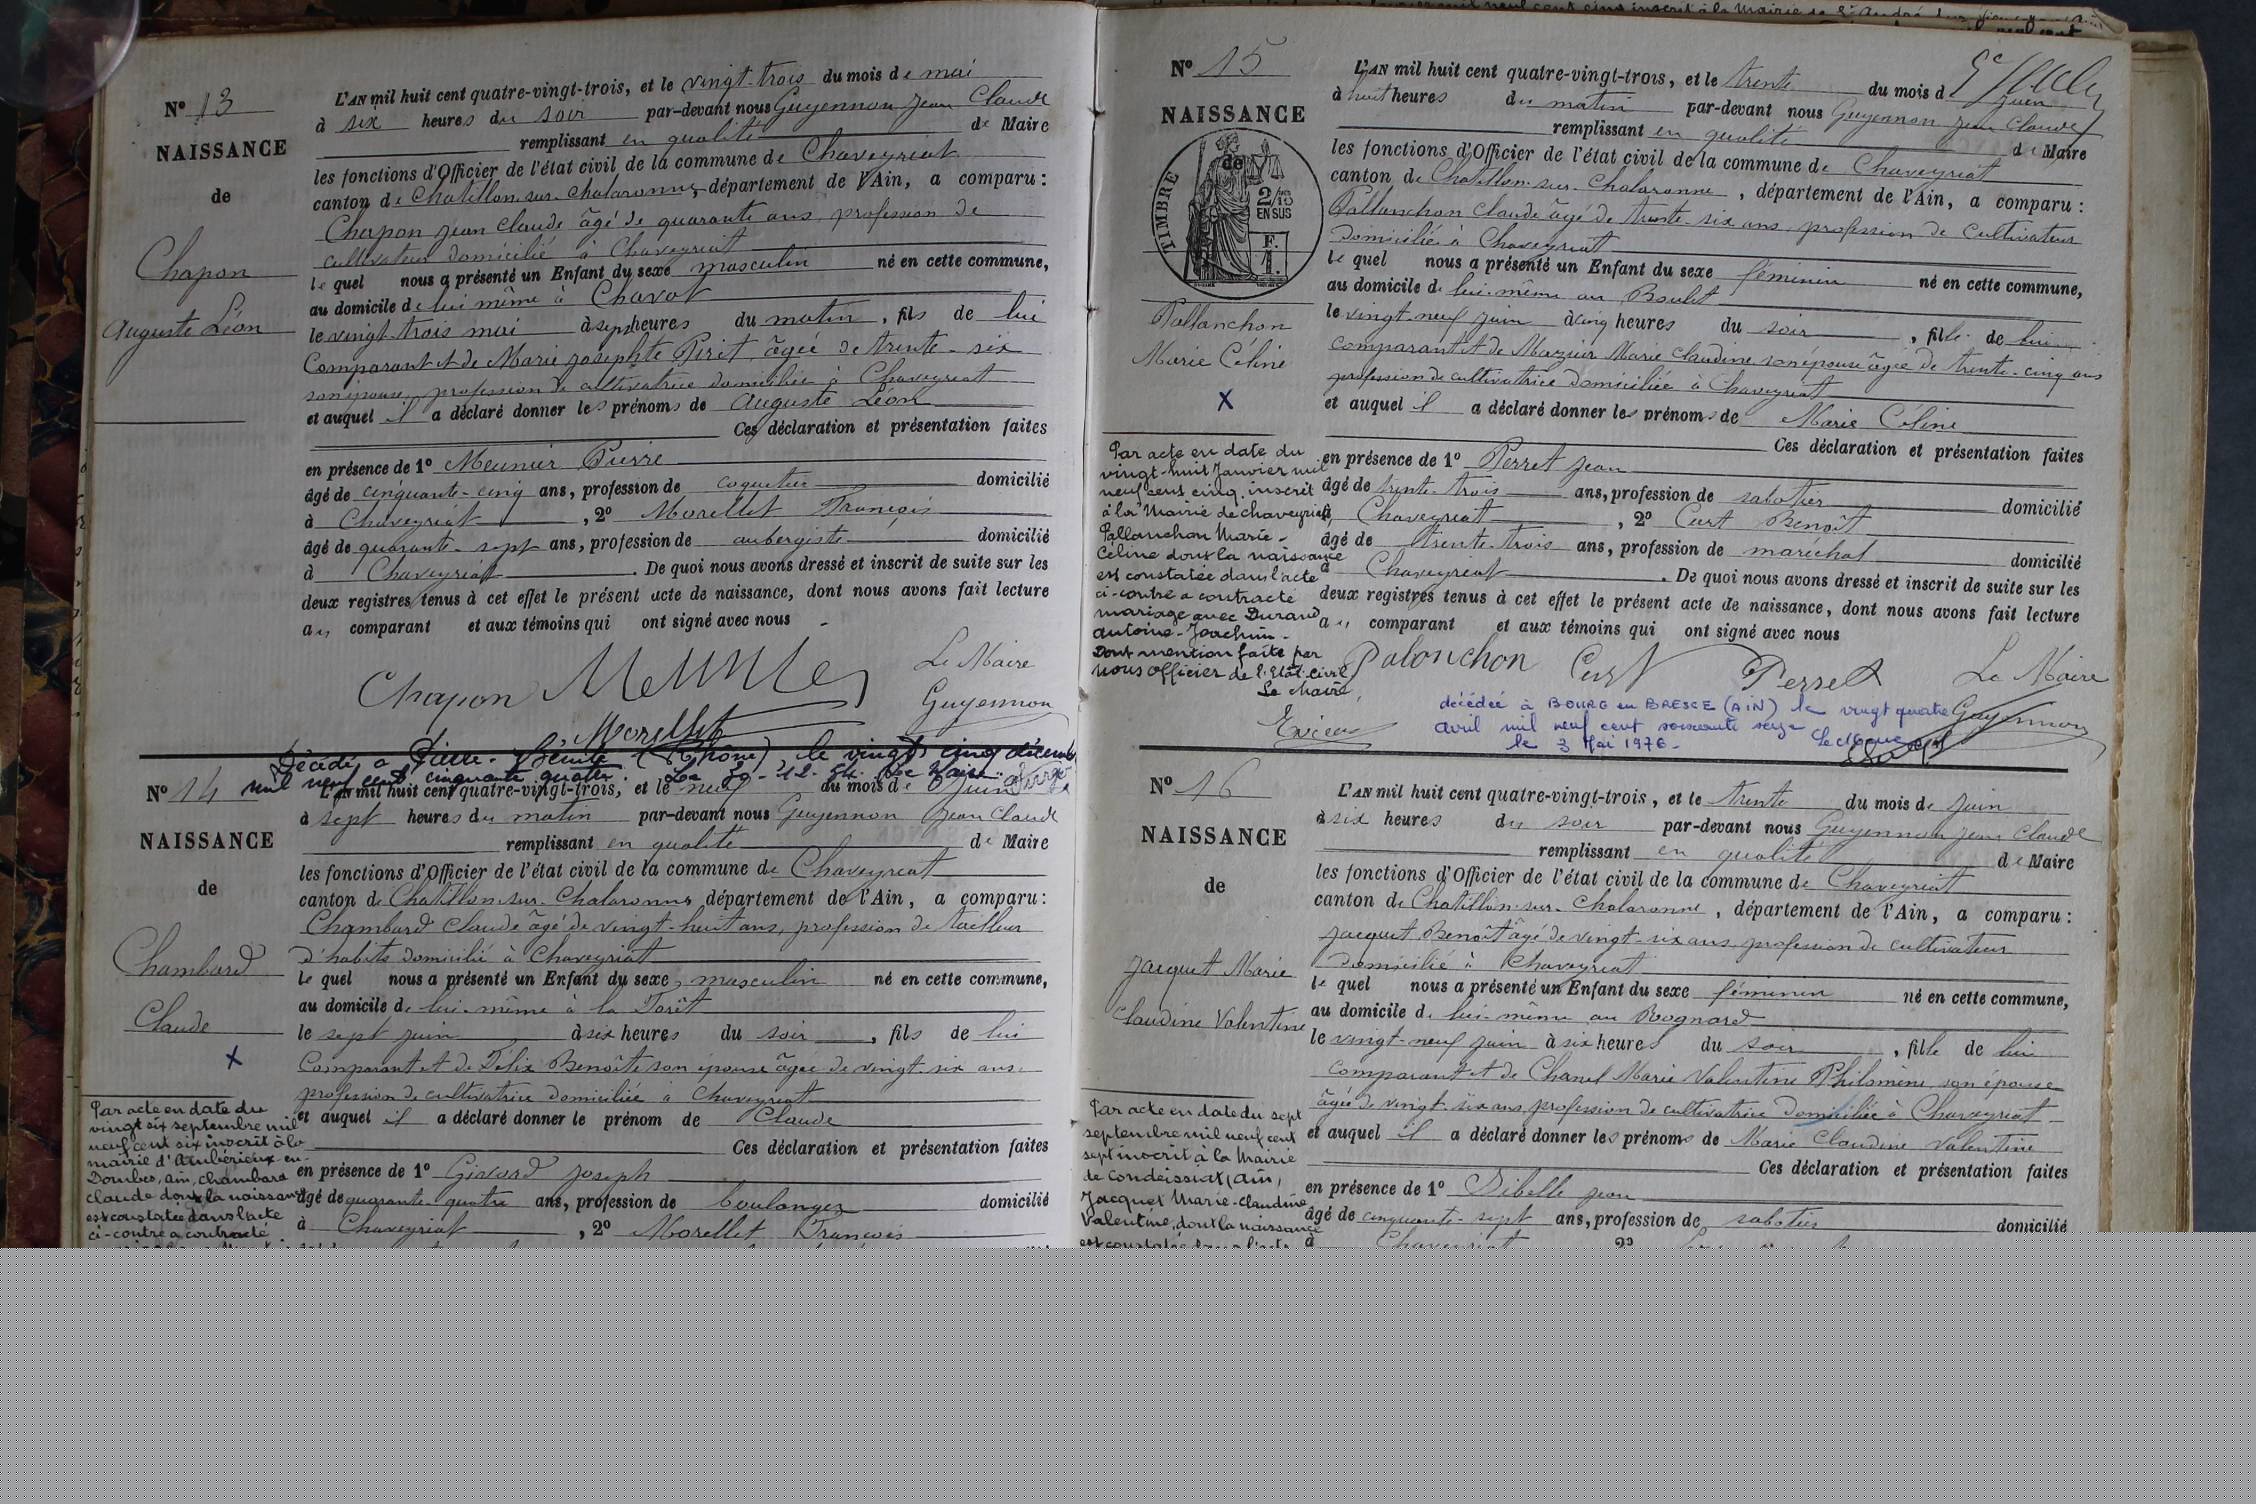 Nº 13
NAISSANCE
de
Chapon
Auguste Léon
L'AN mil huit cent quatre-vingt-trois, et le vingt-trois du mois de mai
à six heures du soir par-devant nous Guyennon Jean Claude
remplissant en qualité de Maire
les fonctions d'Officier de l'état civil de la commune de Chaveyriat
canton de Chatillon-sur-Chalaronne, département de l'Ain, a comparu :
Chapon Jean Claude âgé de quarante ans, profession de
cultivateur domicilié à Chaveyriat
lequel nous a présenté un Enfant du sexe masculin né en cette commune,
au domicile de lui même à Chavot
le vingt-trois mai à sept heures du matin, fils de lui
Comparant et de Marie Josephte Piret, âgée de trente-six
son épouse, profession de cultivatrice domiciliée à Chaveyriat
et auquel il a déclaré donner les prénoms de Auguste Léon
Ces déclaration et présentation faites
en présence de 1º Meunier Pierre
âgé de cinquante-cinq ans, profession de coquetier domicilié
à Chaveyriat, 2º Morellet François
âgé de quarante-sept ans, profession de aubergiste domicilié
à Chaveyriat. De quoi nous avons dressé et inscrit de suite sur les
deux registres tenus à cet effet le présent acte de naissance, dont nous avons fait lecture
au comparant et aux témoins qui ont signé avec nous
Chapon Meunier Le Maire
Morellet Guyennon
Décédé à Pierre-Bénite (Rhône) le vingt cinq décembre
mil neuf cent cinquante quatre. Le 30-12-54. Le Maire
Nº 14
NAISSANCE
de
Chambard
Claude
X
L'AN mil huit cent quatre-vingt-trois, et le neuf du mois de Juin
à sept heures du matin par-devant nous Guyennon Jean Claude
remplissant en qualité de Maire
les fonctions d'Officier de l'état civil de la commune de Chaveyriat
canton de Chatillon-sur-Chalaronne, département de l'Ain, a comparu :
Chambard Claude âgé de vingt-huit ans, profession de tailleur
d'habits domicilié à Chaveyriat
lequel nous a présenté un Enfant du sexe masculin né en cette commune,
au domicile de lui-même à la Forêt
le sept juin à six heures du soir, fils de lui
Comparant et de Félix Benoîte son épouse âgée de vingt-six ans
profession de cultivatrice domiciliée à Chaveyriat
et auquel il a déclaré donner le prénom de Claude
Ces déclaration et présentation faites
en présence de 1º Givord Joseph
âgé de quarante-quatre ans, profession de boulanger domicilié
à Chaveyriat, 2º Morellet François
Par acte en date du
vingt six septembre mil
neuf cent six inscrit à la
mairie d'Ambérieux-en-
Dombes, ain, chambard
claude dont la naissance
est constatée dans l'acte
ci-contre a contracté
Nº 15
NAISSANCE
de
TIMBRE
2/10 EN SUS
F.
1.
Pallanchon
Marie Céline
X
L'AN mil huit cent quatre-vingt-trois, et le trente du mois de juin
à huit heures du matin par-devant nous Guyennon Jean Claude
remplissant en qualité de Maire
les fonctions d'Officier de l'état civil de la commune de Chaveyriat
canton de Chatillon-sur-Chalaronne, département de l'Ain, a comparu :
Pallanchon Claude âgé de trente-six ans, profession de cultivateur
domicilié à Chaveyriat
lequel nous a présenté un Enfant du sexe féminin né en cette commune,
au domicile de lui-même au Boulet
le vingt-neuf juin à cinq heures du soir, fille de lui
comparant et de Mazuir Marie Claudine son épouse âgée de trente-cinq ans
profession de cultivatrice domiciliée à Chaveyriat
et auquel il a déclaré donner les prénoms de Marie Céline
Ces déclaration et présentation faites
en présence de 1º Perret Jean
âgé de trente-trois ans, profession de sabotier domicilié
à Chaveyriat, 2º Curt Benoît
âgé de trente-trois ans, profession de maréchal domicilié
à Chaveyriat. De quoi nous avons dressé et inscrit de suite sur les
deux registres tenus à cet effet le présent acte de naissance, dont nous avons fait lecture
au comparant et aux témoins qui ont signé avec nous
Palonchon Curt Perret Le Maire
Guyennon
Par acte en date du
vingt-huit Janvier mil
neuf cent cinq, inscrit
à la Mairie de chaveyriat
Pallanchon Marie-
Céline dont la naissance
est constatée dans l'acte
ci-contre a contracté
mariage avec Durand
Antoine-Joachim.
Dont mention faite par
Nous officier de l'Etat-civil
Le Maire,
décédée à BOURG en BRESSE (AIN) le vingt quatre
avril mil neuf cent soixante seize
le 3 Mai 1976. Le Maire
Nº 16
NAISSANCE
de
Jacquet Marie
Claudine Valentine
L'AN mil huit cent quatre-vingt-trois, et le trente du mois de juin
à six heures du soir par-devant nous Guyennon Jean Claude
remplissant en qualité de Maire
les fonctions d'Officier de l'état civil de la commune de Chaveyriat
canton de Chatillon-sur-Chalaronne, département de l'Ain, a comparu :
Jacquet Benoît âgé de vingt-six ans, profession de cultivateur
domicilié à Chaveyriat
lequel nous a présenté un Enfant du sexe féminin né en cette commune,
au domicile de lui-même au Rognard
le vingt-neuf juin à six heures du soir, fille de lui
comparant et de Chanel Marie Valentine Philomène son épouse
âgée de vingt six ans, profession de cultivatrice domiciliée à Chaveyriat
et auquel il a déclaré donner les prénoms de Marie Claudine Valentine
Ces déclaration et présentation faites
en présence de 1º Dibelle Jean
âgé de cinquante-sept ans, profession de sabotier domicilié
à Chaveyriat 2º
Par acte en date du sept
septembre mil neuf cent
sept inscrit à la Mairie
de Condeissiat, (ain),
Jacquet Marie-claudine
Valentine, dont la naissance
est constatée dans l'acte